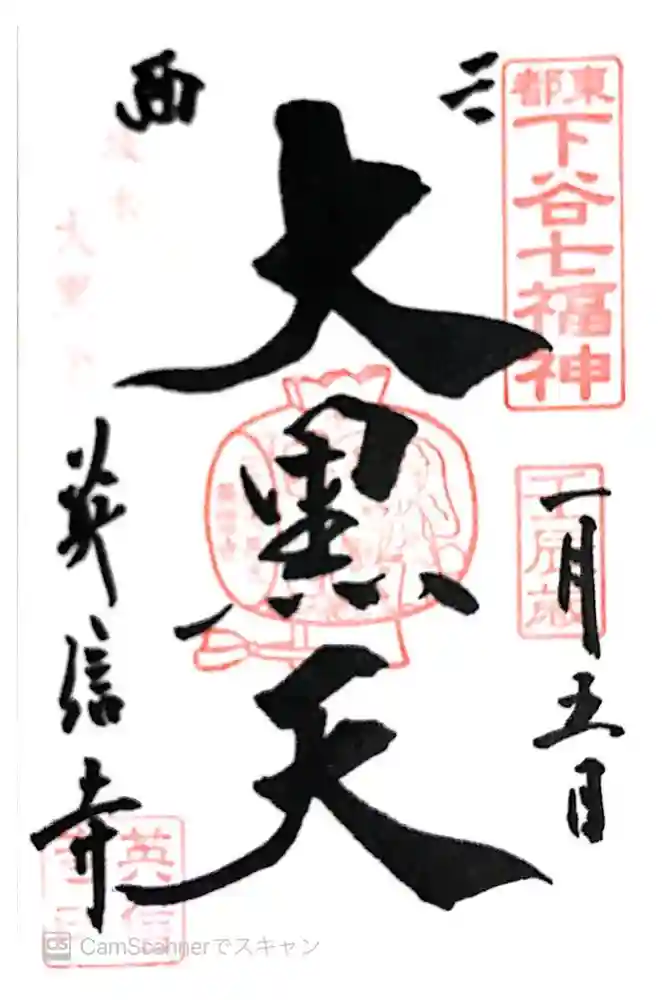 東都
下谷七福神
三
面
大黒天
一月五日
英信寺
英信
CamScannerでスキャン